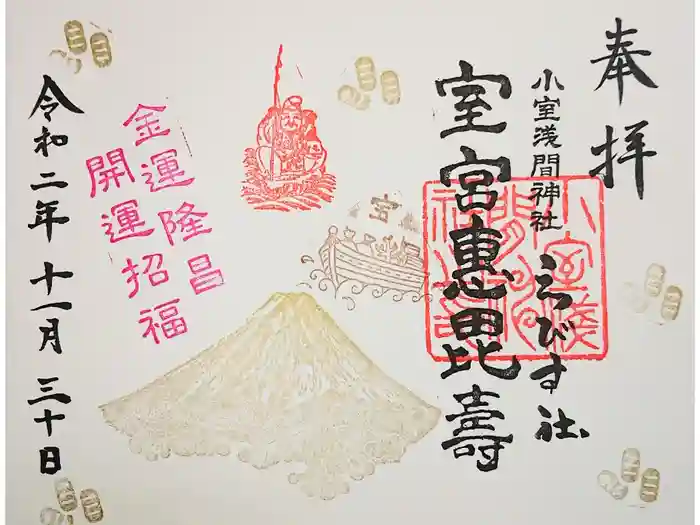 奉拝
小室浅間神社 えびす社
室宮恵毘壽
宝
金運隆昌
開運招福
令和二年 十一月 三十日